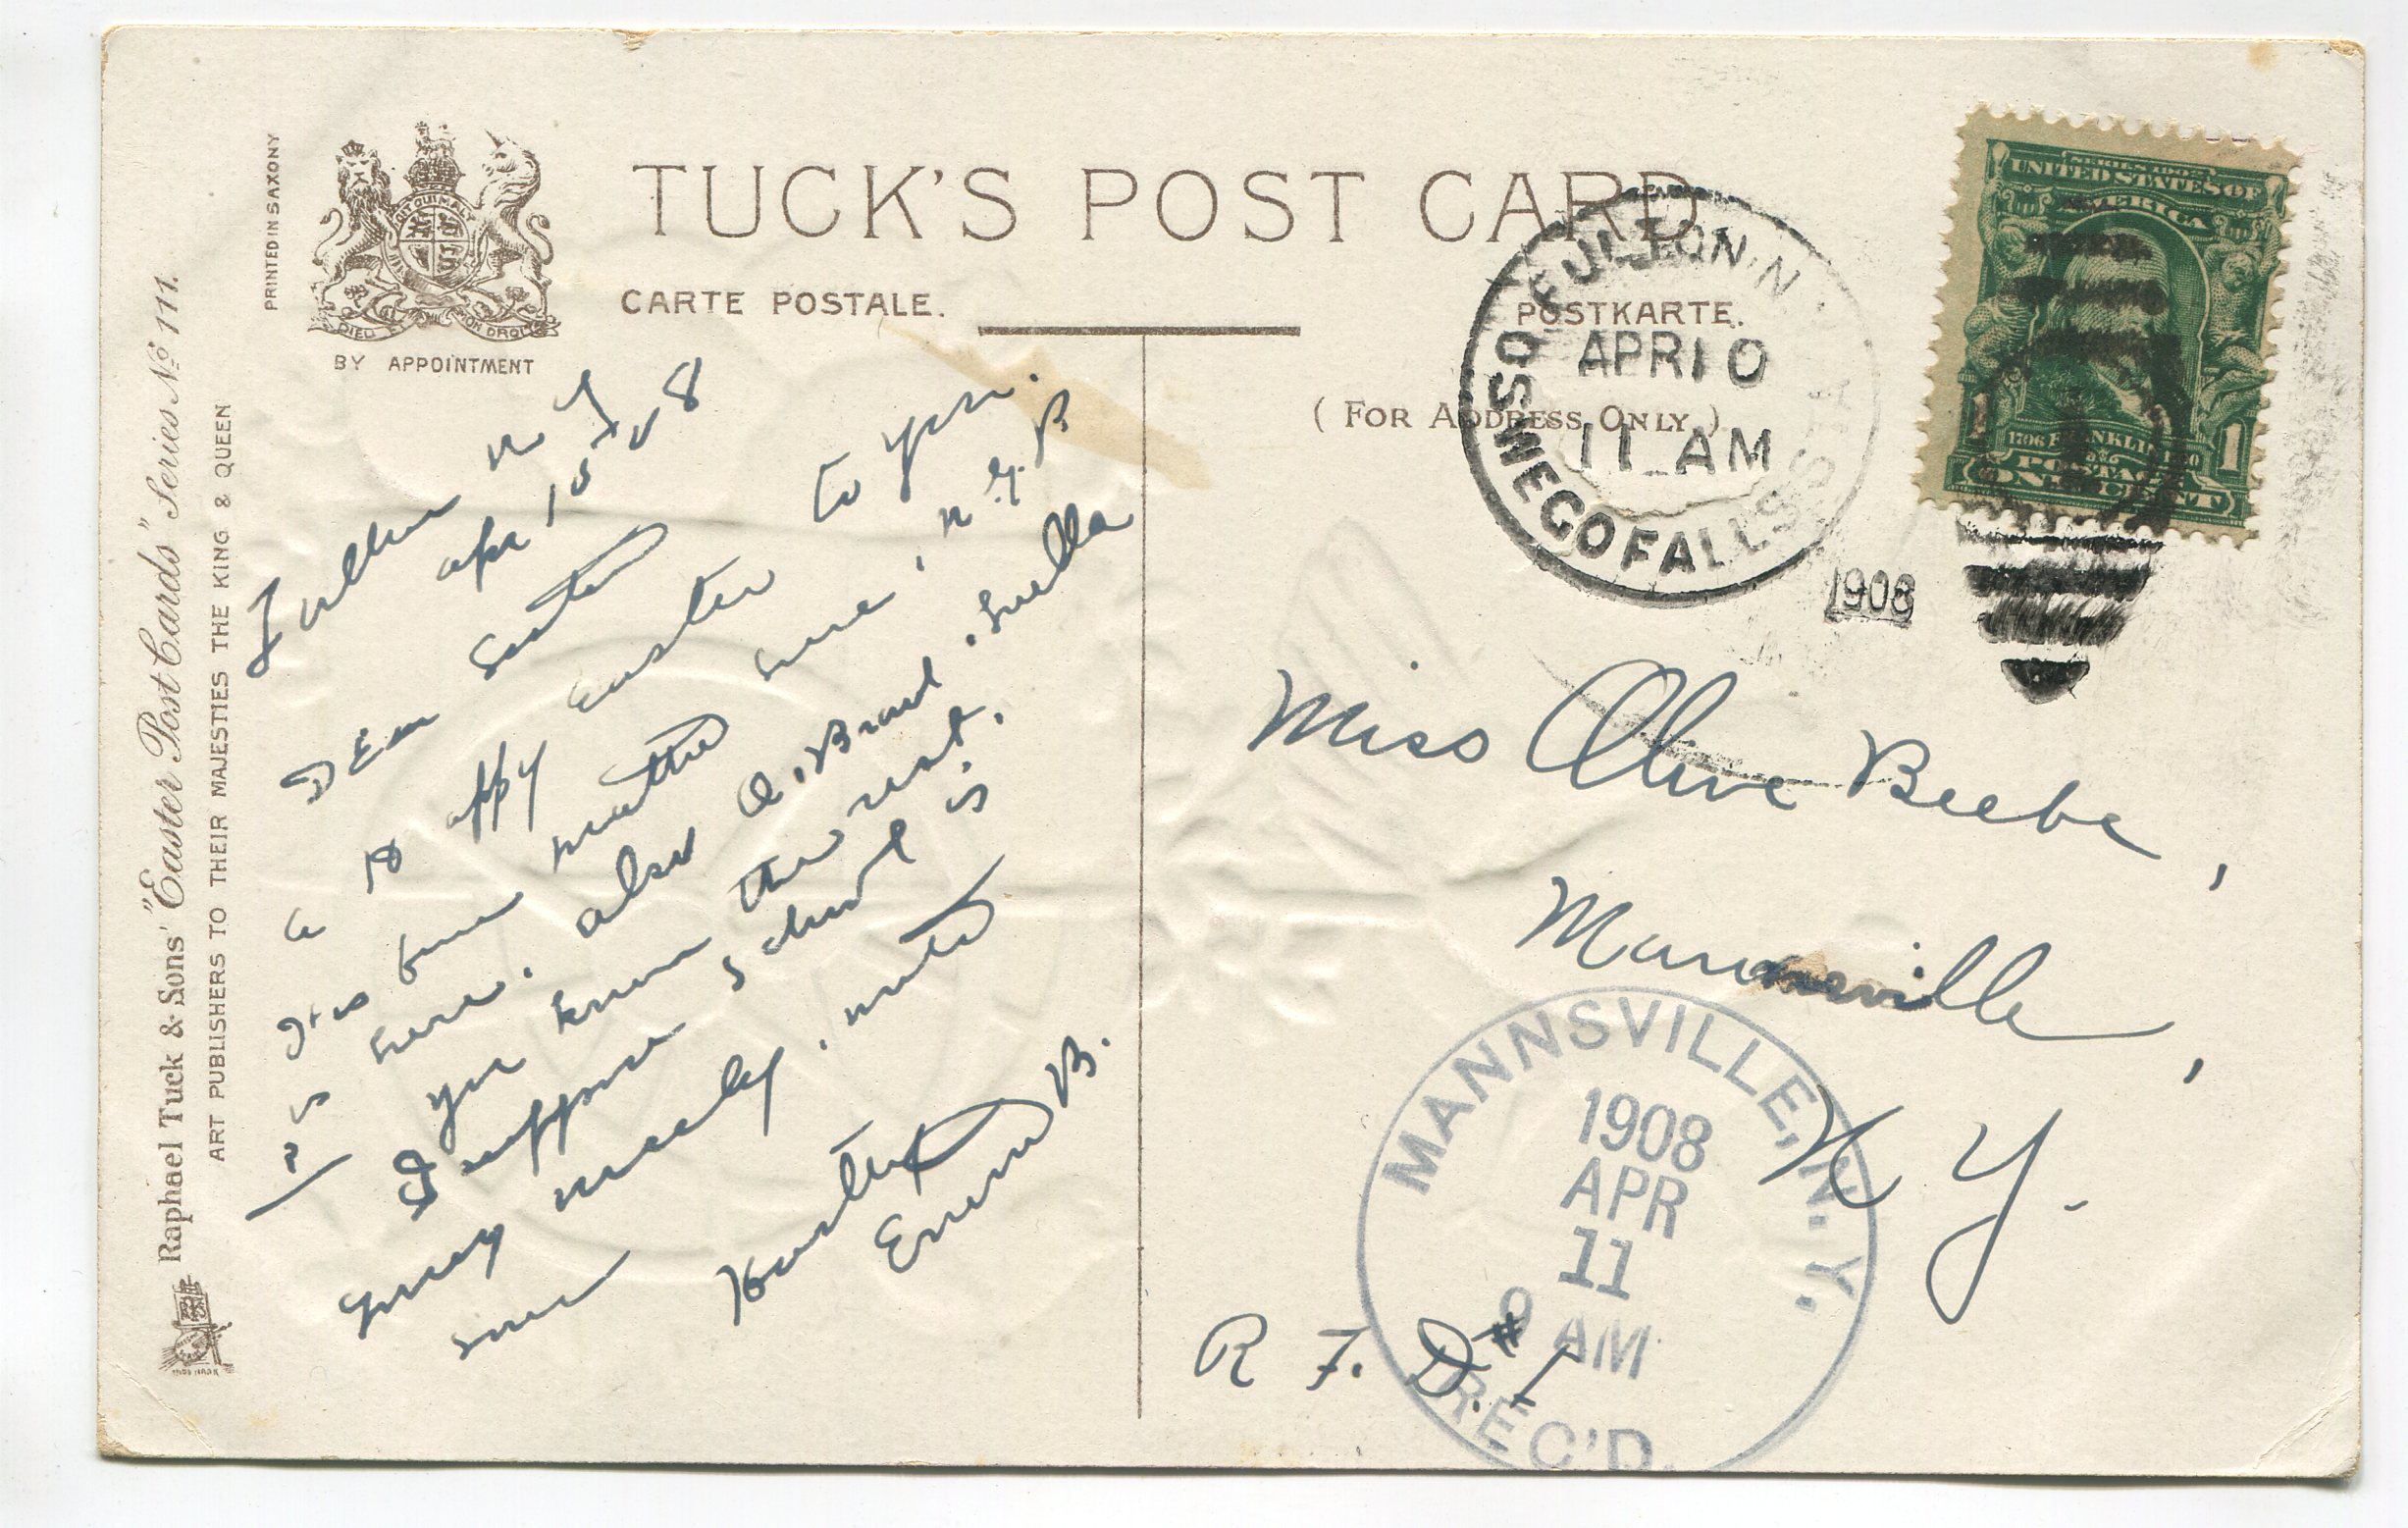 PRINTED IN SAXONY
BY APPOINTMENT
TUCK'S POST CARD
CARTE POSTALE.
POSTKARTE.
(FOR ADDRESS ONLY.)
Raphael Tuck & Sons' "Easter Post Cards" Series No 111.
ART PUBLISHERS TO THEIR MAJESTIES THE KING & QUEEN
FULTON, N
OSWEGO FALLS STA
APR 10
11 AM
1908
UNITED STATES OF
AMERICA
1706 FRANKLIN 1790
POSTAGE
ONE CENT
1
Fulton N Y
Apr 10 08
Dear Sister
a Happy Easter to you.
It is fine
here, also
you know the rest.
I suppose school is
going nicely, write
soon
B.
Miss Olive Beebe,
Mannsville,
N Y.
R. F. D. # 1
MANNSVILLE, N. Y.
1908
APR
11
9 AM
REC'D.